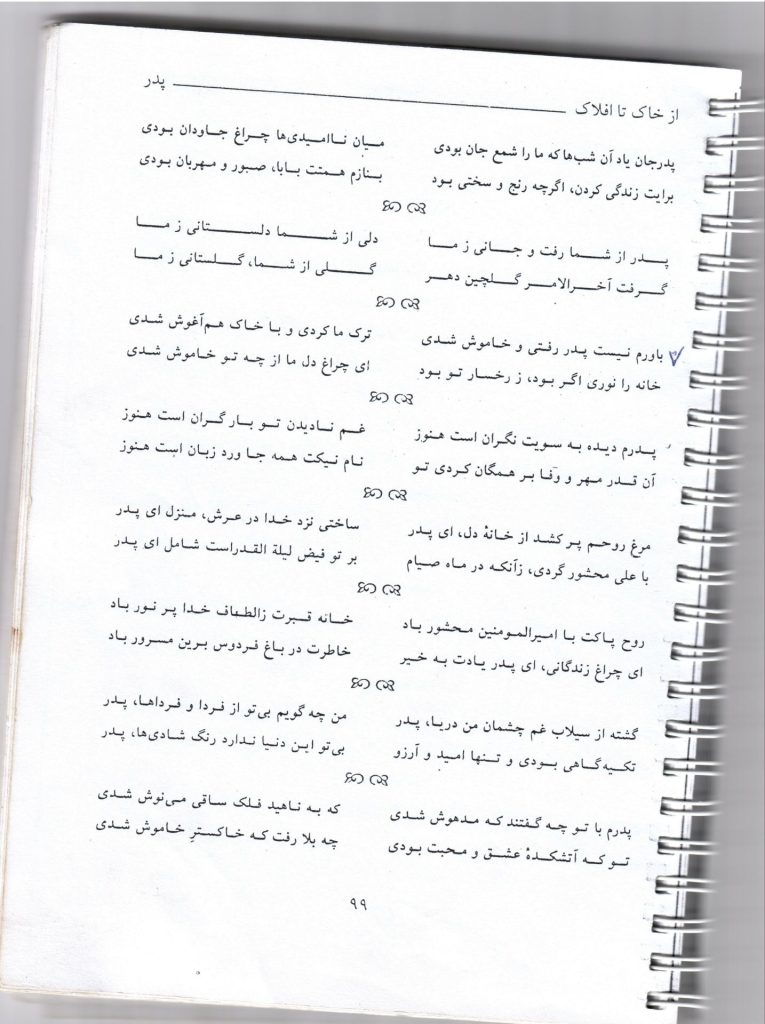 از خاک تا افلاک پدر
پدرجان یاد آن شب‌ها که ما را شمع جان بودی میان ناامیدی‌ها چراغ جاودان بودی
برایت زندگی کردن، اگرچه رنج و سختی بود بنازم همتت بابا، صبور و مهربان بودی
پدر از شما رفت و جانی ز ما دلی از شما دلستانی ز ما
گرفت آخرالامر گلچین دهر گلی از شما، گلستانی ز ما
باورم نیست پدر رفتی و خاموش شدی ترک ما کردی و با خاک هم‌آغوش شدی
خانه را نوری اگر بود، ز رخسار تو بود ای چراغ دل ما از چه تو خاموش شدی
پدرم دیده به سویت نگران است هنوز غم نادیدن تو بار گران است هنوز
آن قدر مهر و وفا بر همگان کردی تو نام نیکت همه جا ورد زبان است هنوز
مرغ روحم پر کشد از خانۀ دل، ای پدر ساختی نزد خدا در عرش، منزل ای پدر
با علی محشور گردی، زآنکه در ماه صیام بر تو فیض لیلة القدراست شامل ای پدر
روح پاکت با امیرالمومنین محشور باد خانه قبرت زالطاف خدا پر نور باد
ای چراغ زندگانی، ای پدر یادت به خیر خاطرت در باغ فردوس برین مسرور باد
گشته از سیلاب غم چشمان من دریا، پدر من چه گویم بی‌تو از فردا و فرداها، پدر
تکیه‌گاهی بودی و تنها امید و آرزو بی‌تو این دنیا ندارد رنگ شادی‌ها، پدر
پدرم با تو چه گفتند که مدهوش شدی که به ناهید فلک ساقی می‌نوش شدی
تو که آتشکدۀ عشق و محبت بودی چه بلا رفت که خاکسترِ خاموش شدی
۹۹